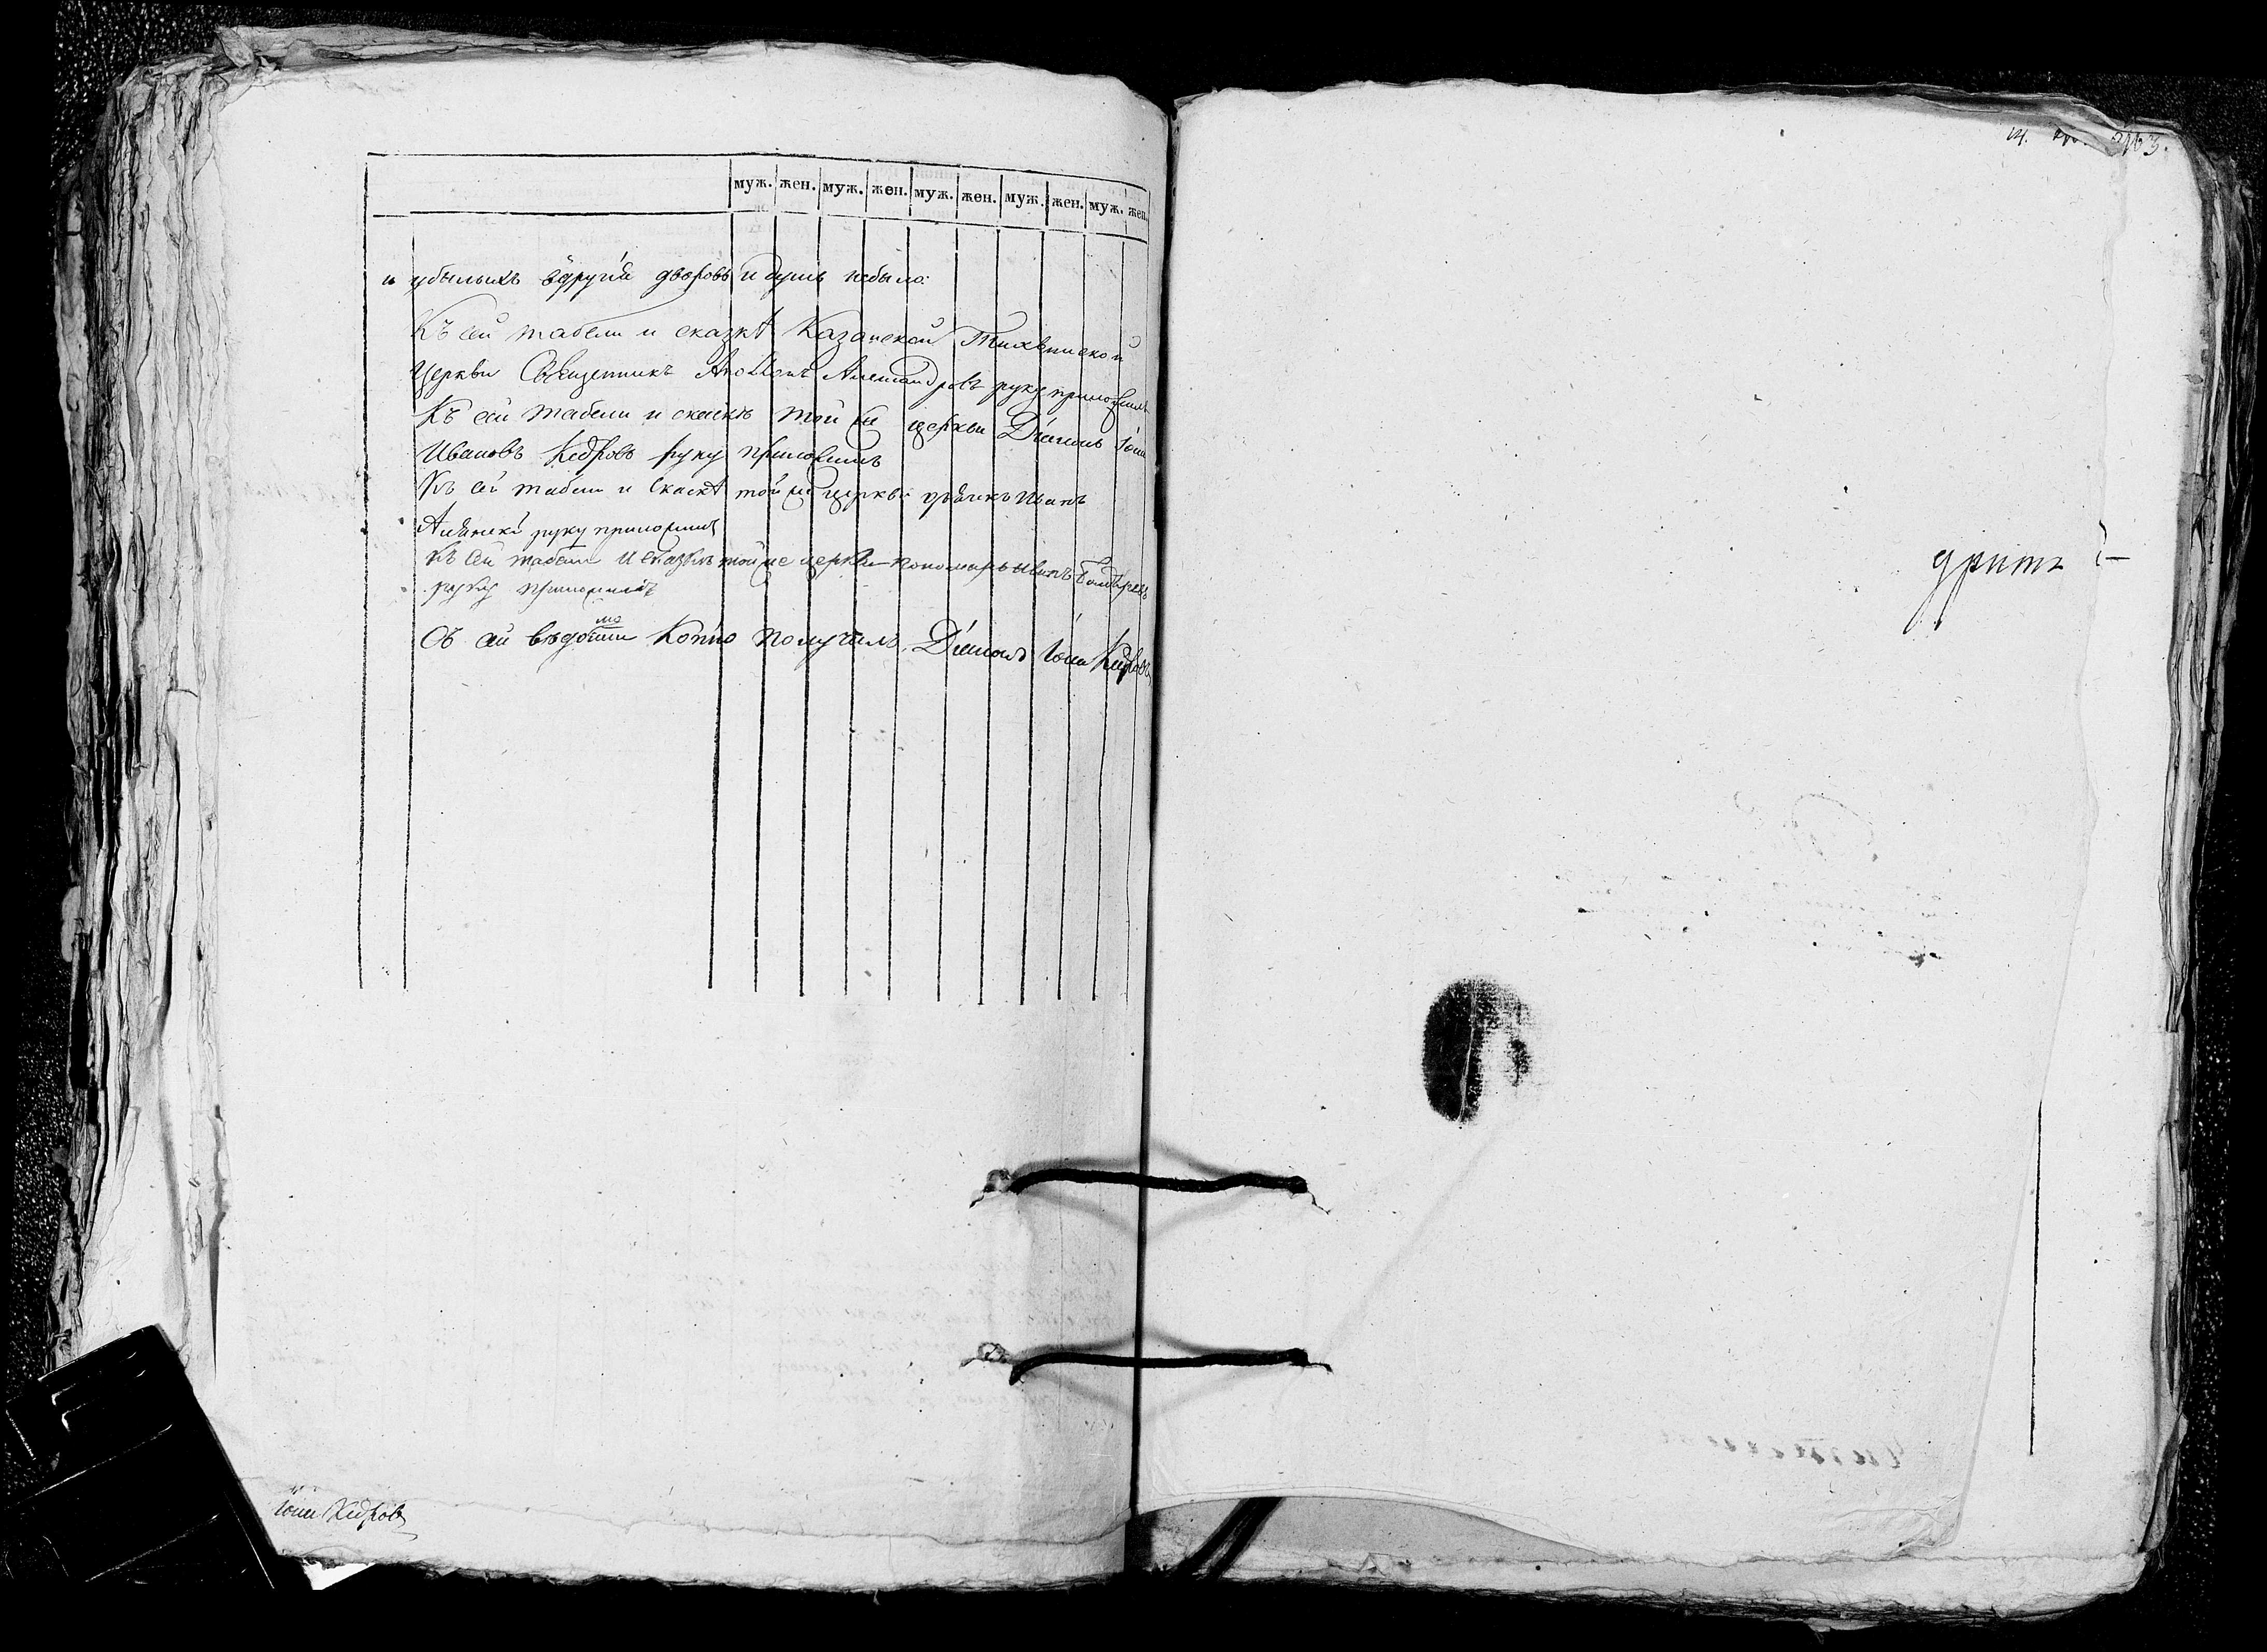 муж. жен. муж. жен. муж. жен. муж. жен. муж. жен.
и убылыхъ вдругія дворовъ и душъ небыло:
Къ сей табели и сказкѣ Казанской Тихвинской
Церкви Священникъ Александровъ руку приложилъ
Къ сей табели и сказкѣ той же церкви Діаконъ Іона
Ивановъ Кедровъ руку приложилъ
Къ сей табели и сказкѣ той же церкви дьячекъ Иванъ
руку приложилъ
Къ сей табели и сказкѣ той же церкви пономарь Иванъ
руку приложилъ
Съ сей вѣдомости копію получилъ, Діаконъ Іона Кедровъ
Іона Кедровъ
3.